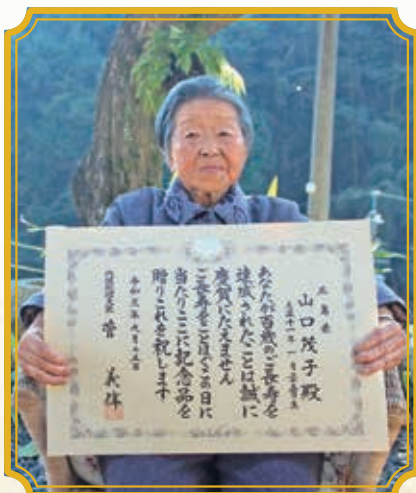 山口茂子殿
あなたが百歳のご長寿を
達成されたことは誠に
慶賀にたえません
ご長寿をことほぐこの日に
当たりここに記念品を
贈りこれを祝します
令和三年九月十五日
内閣総理大臣 菅 義偉